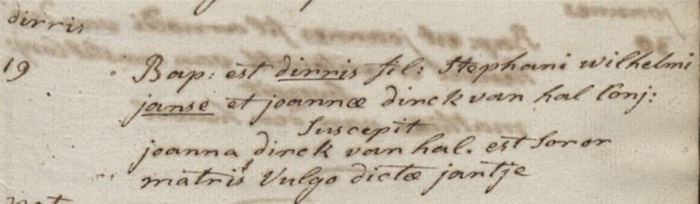 dirris
19 Bap: est dirris fil: Stephani wilhelmi
janse et joannæ dirck van hal Conj:
Suscepit
joanna dirck van hal. est Soror
matris Vulgo dictæ jantje